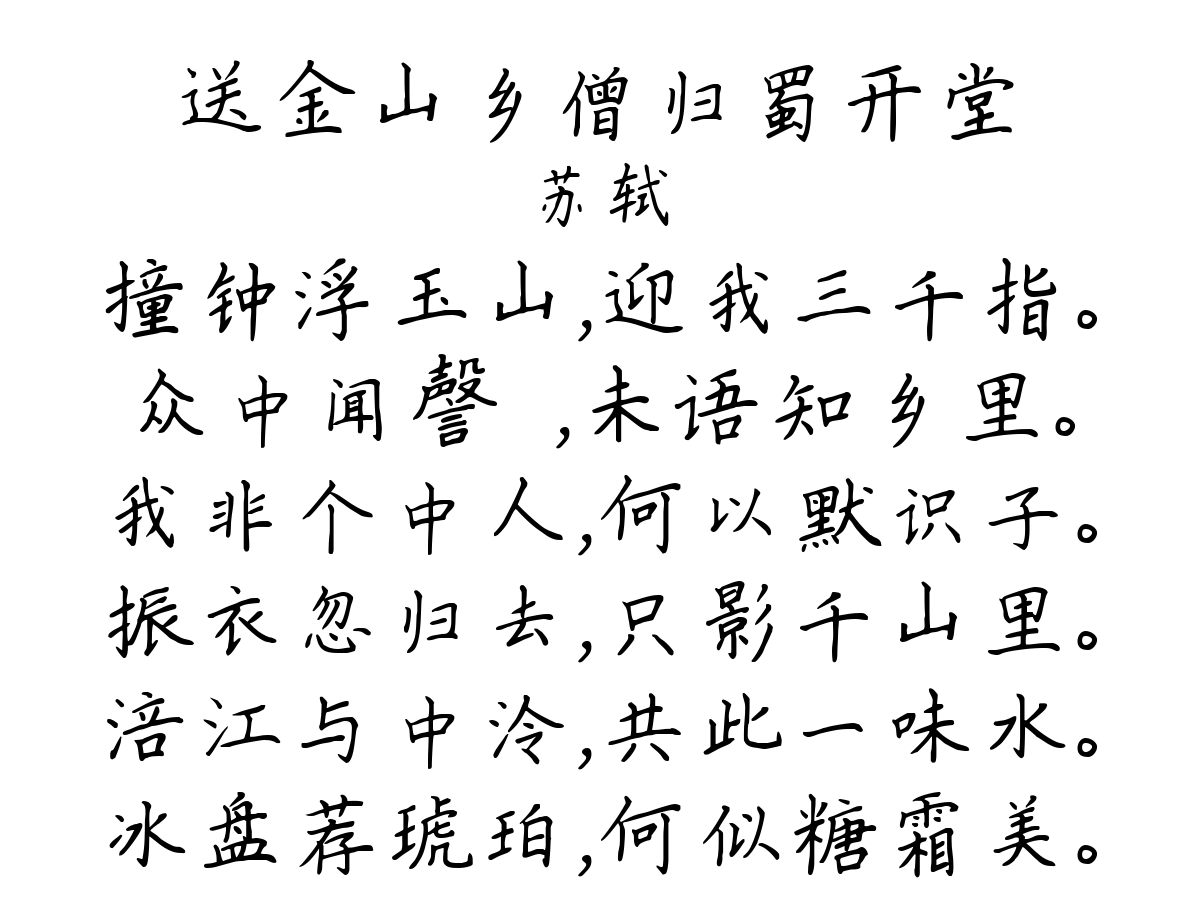 送金山乡僧归蜀开堂
苏轼
撞钟浮玉山,迎我三千指。
众中闻謦 ,未语知乡里。
我非个中人,何以默识子。
振衣忽归去,只影千山里。
涪江与中泠,共此一味水。
冰盘荐琥珀,何似糖霜美。